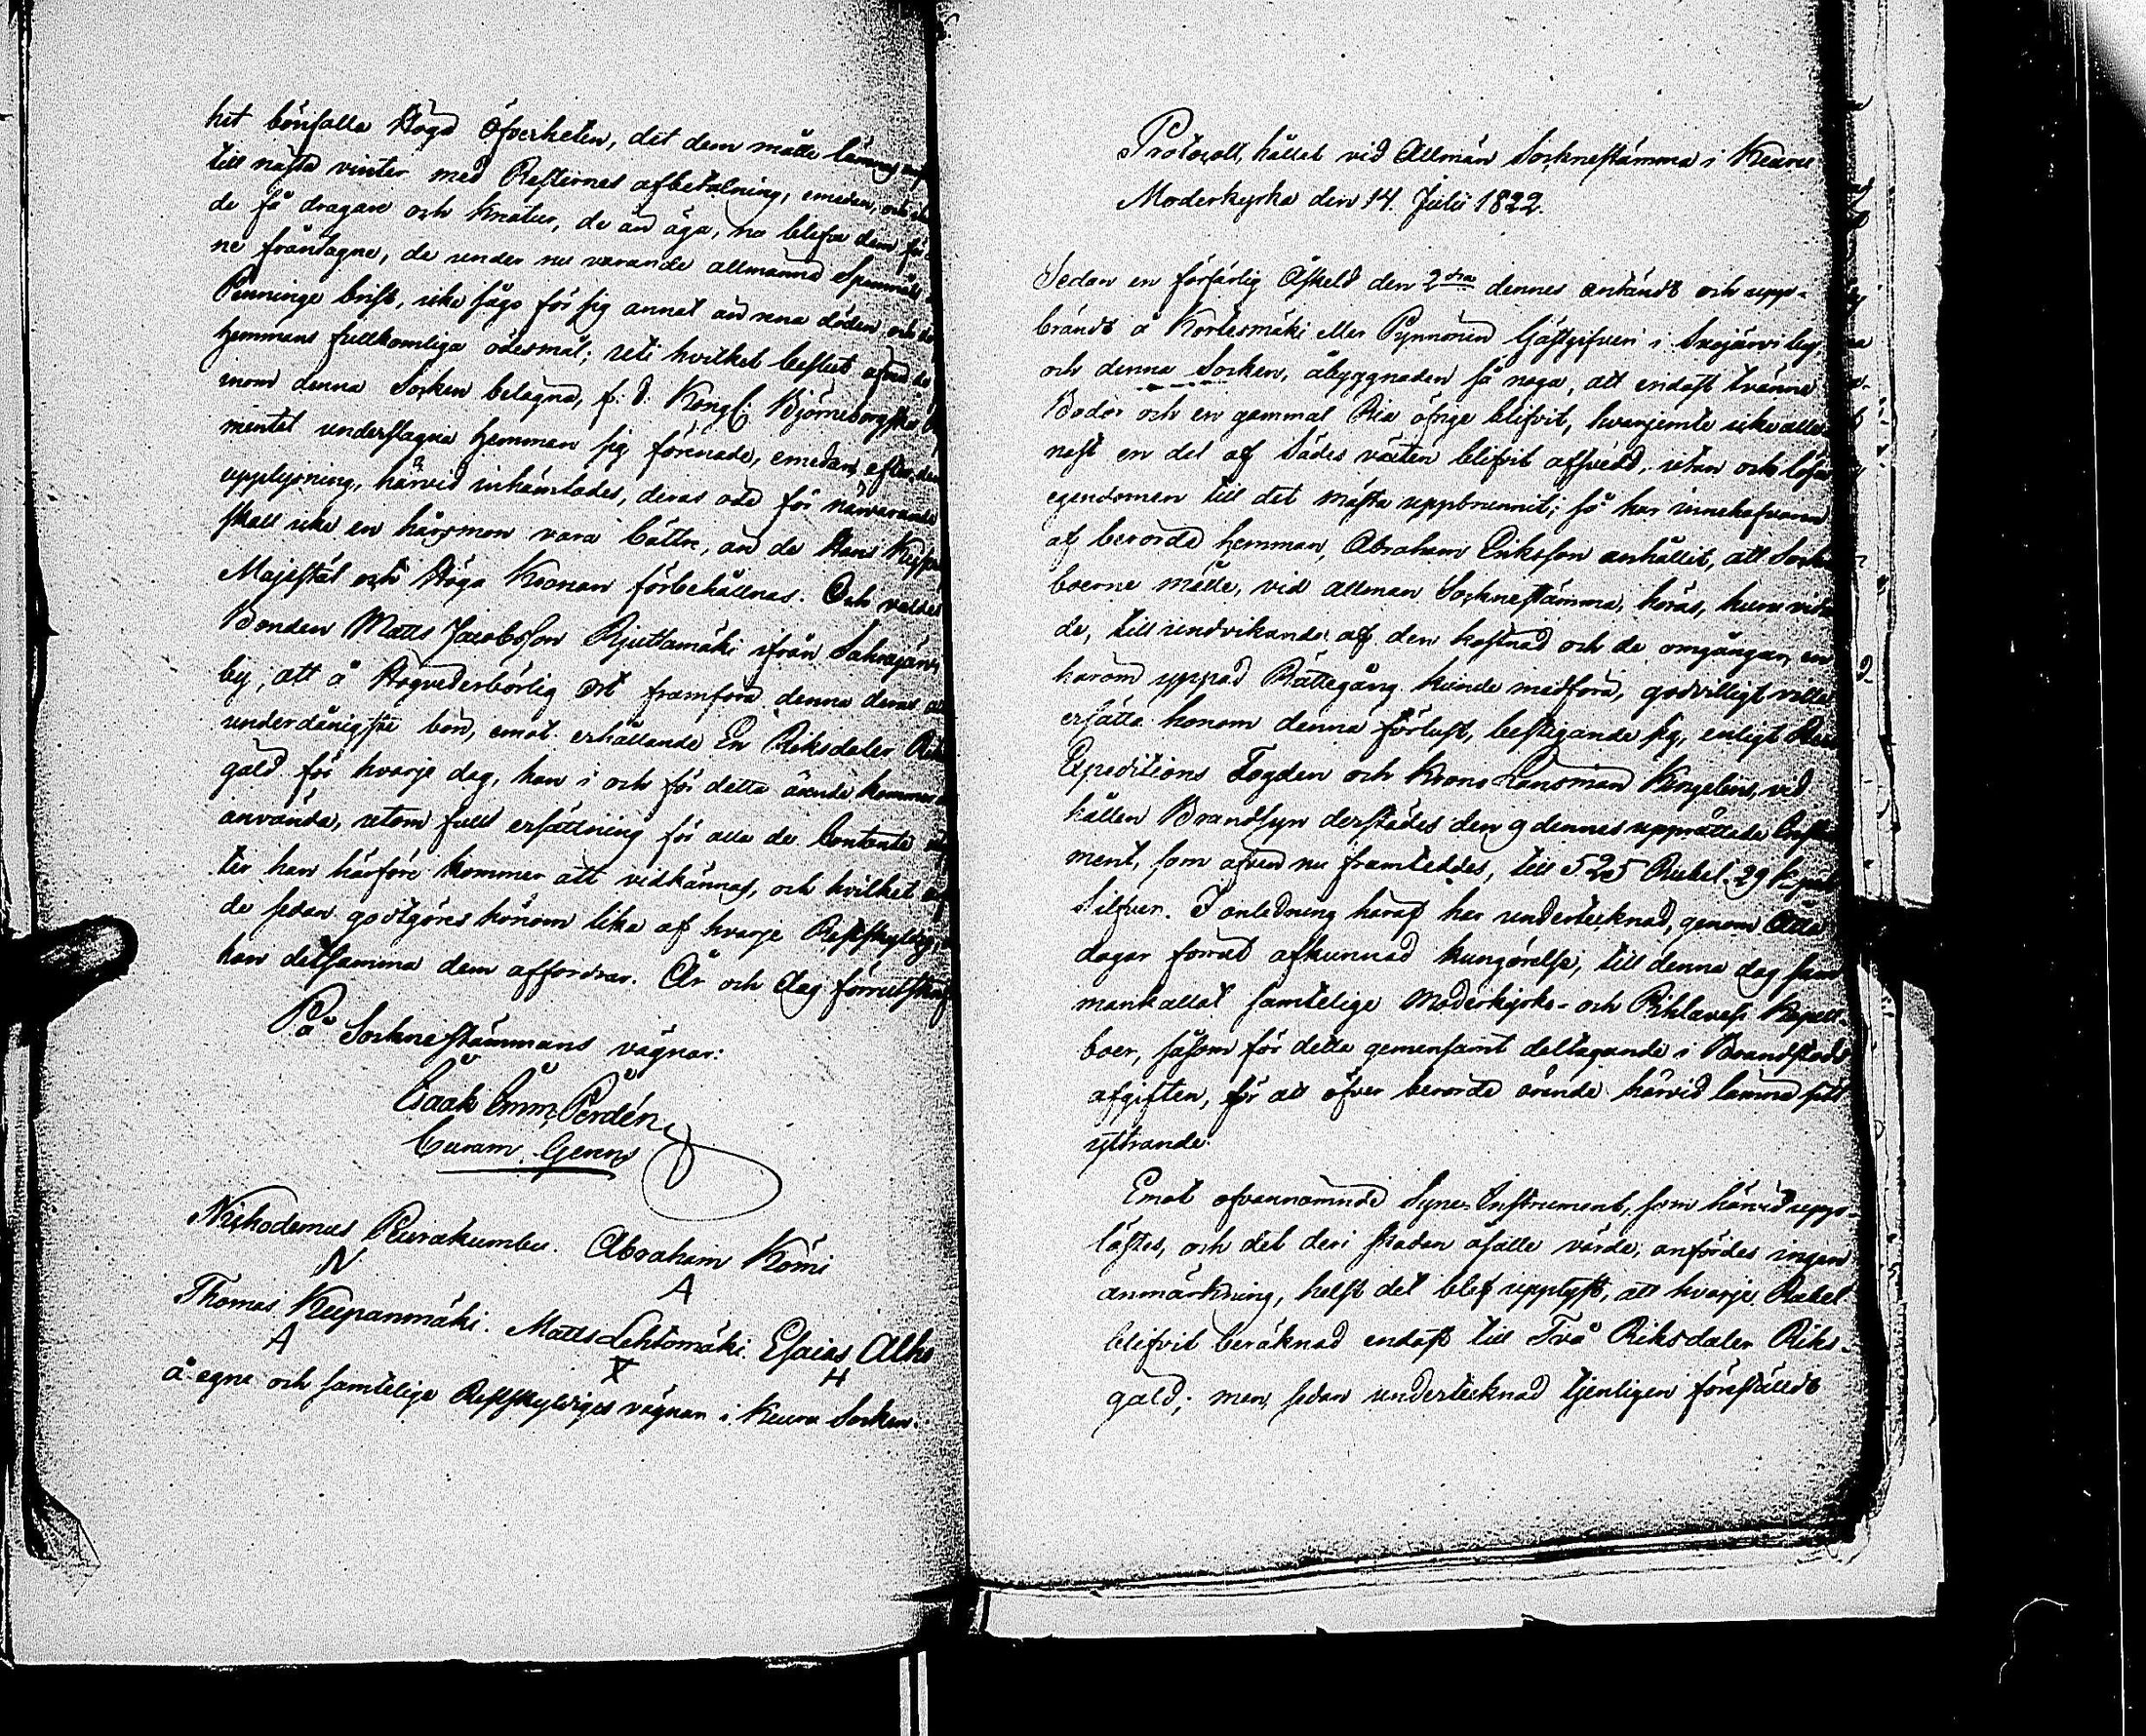 het bönfalla Höga Öfverheten, det dem måtte lämnas
till nästa vinter med Resternes afbetalning, emedan, och
de få dragare och Kreatur, de än äga, nu blefve dem
ne fråntagne, de under nu varande allmänna Spanmåls
Penninge brist, icke sågo för sig annat än rena döden och
hemmans fullkomliga ödesmål; uti hvilket beslut äfven de
inom denna Socken belägna, f. d. Kongl. Björneborgska
mentet underslagna hemman sig förenade, emedan, efter den
upplysning, härvid inhämtades, deras öde för närvarande
skall icke en hårsmon vara bättre, än de Hans Kejserl.
Majestät och Höga Kronan förbehållnas. Och valdes
Bonden Matts Jacobsson Rjuttamäki ifrån
by, att å Högvederbörlig ort framföra denna deras
underdånigste bön, emot erhållande En Riksdaler Riks
gäld för hvarje dag, han i och för detta ärende kommer
använda, utom full ersättning för alla de Contanta
ter han härföre kommer att vidkännas, och hvilket
de sedan godtgöres honom lika af hvarje Restskyldig,
han detsamma dem affordrar. År och dag förrutskrif
På Sockne stämmans vägnar:
Isaak Emm. Perdén
Curam. Gerens
Nickodemus Peurakumbu. Abraham Kömi
N A
Thomas Keepanmäki. Matts Lehtomäki. Esaias Alho
A X H
å egne och samtelige Restskyldiges vägnar i Keuru Socken.
Protocoll, hållet vid Allmän Sockenstämma i Keuru
Moderkyrka den 14. Julii 1822.
Sedan en förfärlig Åskeld den 2dra dennes antändt och upp-
brändt å Kortesmäki eller Pynnönen Gästgifveri i by,
och denna Socken, åbyggnaden så noga, att endast tvänne
Bodor och en gammal Ria öfrige blifvit, hvarjemte icke alle-
nast en del af Sädes växten blifvit afsvedd, utan och lösa
egendomen till det mästa uppbrunnit; så har innehafvaren
af berörde hemman, Abraham Eriksson anhållit, att Sockne
boerne måtte, vid allmän Socknestämma, höras, huru vida
de, till undvikande af den kostnad och de omgångar, en
härom yppad Rättegång kunde medföra, godvilligt ville
ersätta honom denna förlust, bestigande sig, enligt
Expeditions Fogden och Krono Länsman Kingelins, vid
hållen Brandsyn derstädes den 9 dennes upprättade Instru
ment, som äfven nu framteddes, till 525 Rubel 29 kop.
Silfver. I anledning häraf har undertecknad, genom Åtta
dagar förrut afkunnad kungörelse, till denna dag sam
mankallat samtelige Moderkyrko- och Pihlavesi Kapell-
boer, såsom för detta gemensamt deltagande i Brandstods
afgiften, för att öfver berörde ärende härvid lämna sitt
yttrande.
Emot ofvannämnde Syne-Instrument, som härvid upp-
lästes, och det deri skadan åsatte värde, anfördes ingen
anmärkning, helst det blef upplyst, att hvarje Rubel
blifvit beräknad endast till Två Riksdaler Riks-
gäld; men, sedan undertecknad tjenligen föreställdt